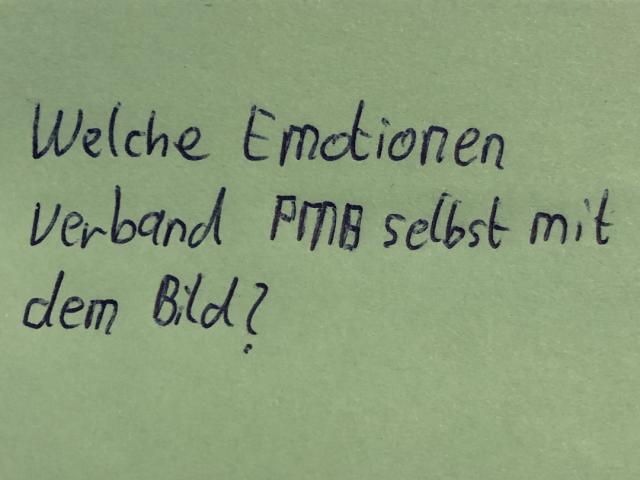 Welche Emotionen
verband PMB selbst mit
dem Bild?